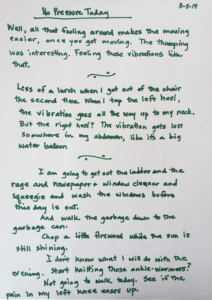 No Pressure Today
3-5-19
Well, all that fooling around makes the moving
easier, once you get moving. The thumping
was interesting. Feeling those vibrations like
that.
Less of a lurch when I got out of the chair
the second time. When I tap the left heel,
the vibration goes all the way up to my neck.
But the right heel? The vibration gets lost
somewhere in my abdomen, like it's a big
water balloon
I am going to get out the ladder and the
rags and newspaper & window cleaner and
squeegie and wash the windows before
this day is out.
And walk the garbage down to the
garbage can.
Chop a little firewood while the sun is
still shining.
I don't know what I will do with the
evening. Start knitting those ankle-warmers?
Not going to walk today. See if the
pain in my left knee eases up.